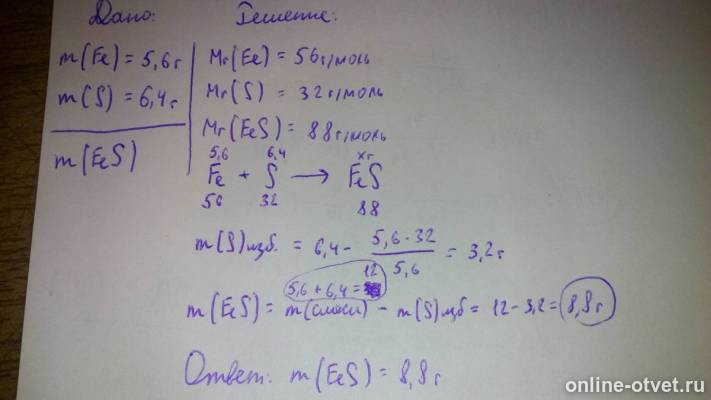 Дано:
Решение:
m(Fe) = 5,6 г
m(S) = 6,4 г
m(FeS)
Mr(Fe) = 56 г/моль
Mr(S) = 32 г/моль
Mr(FeS) = 88 г/моль
5,6 6,4 x г
Fe + S → FeS
56 32 88
m(S)изб. = 6,4 - 5,6 · 32 / 5,6 = 3,2 г
5,6 + 6,4 = 12
m(FeS) = m(смеси) - m(S)изб = 12 - 3,2 = 8,8 г
Ответ: m(FeS) = 8,8 г
online-otvet.ru